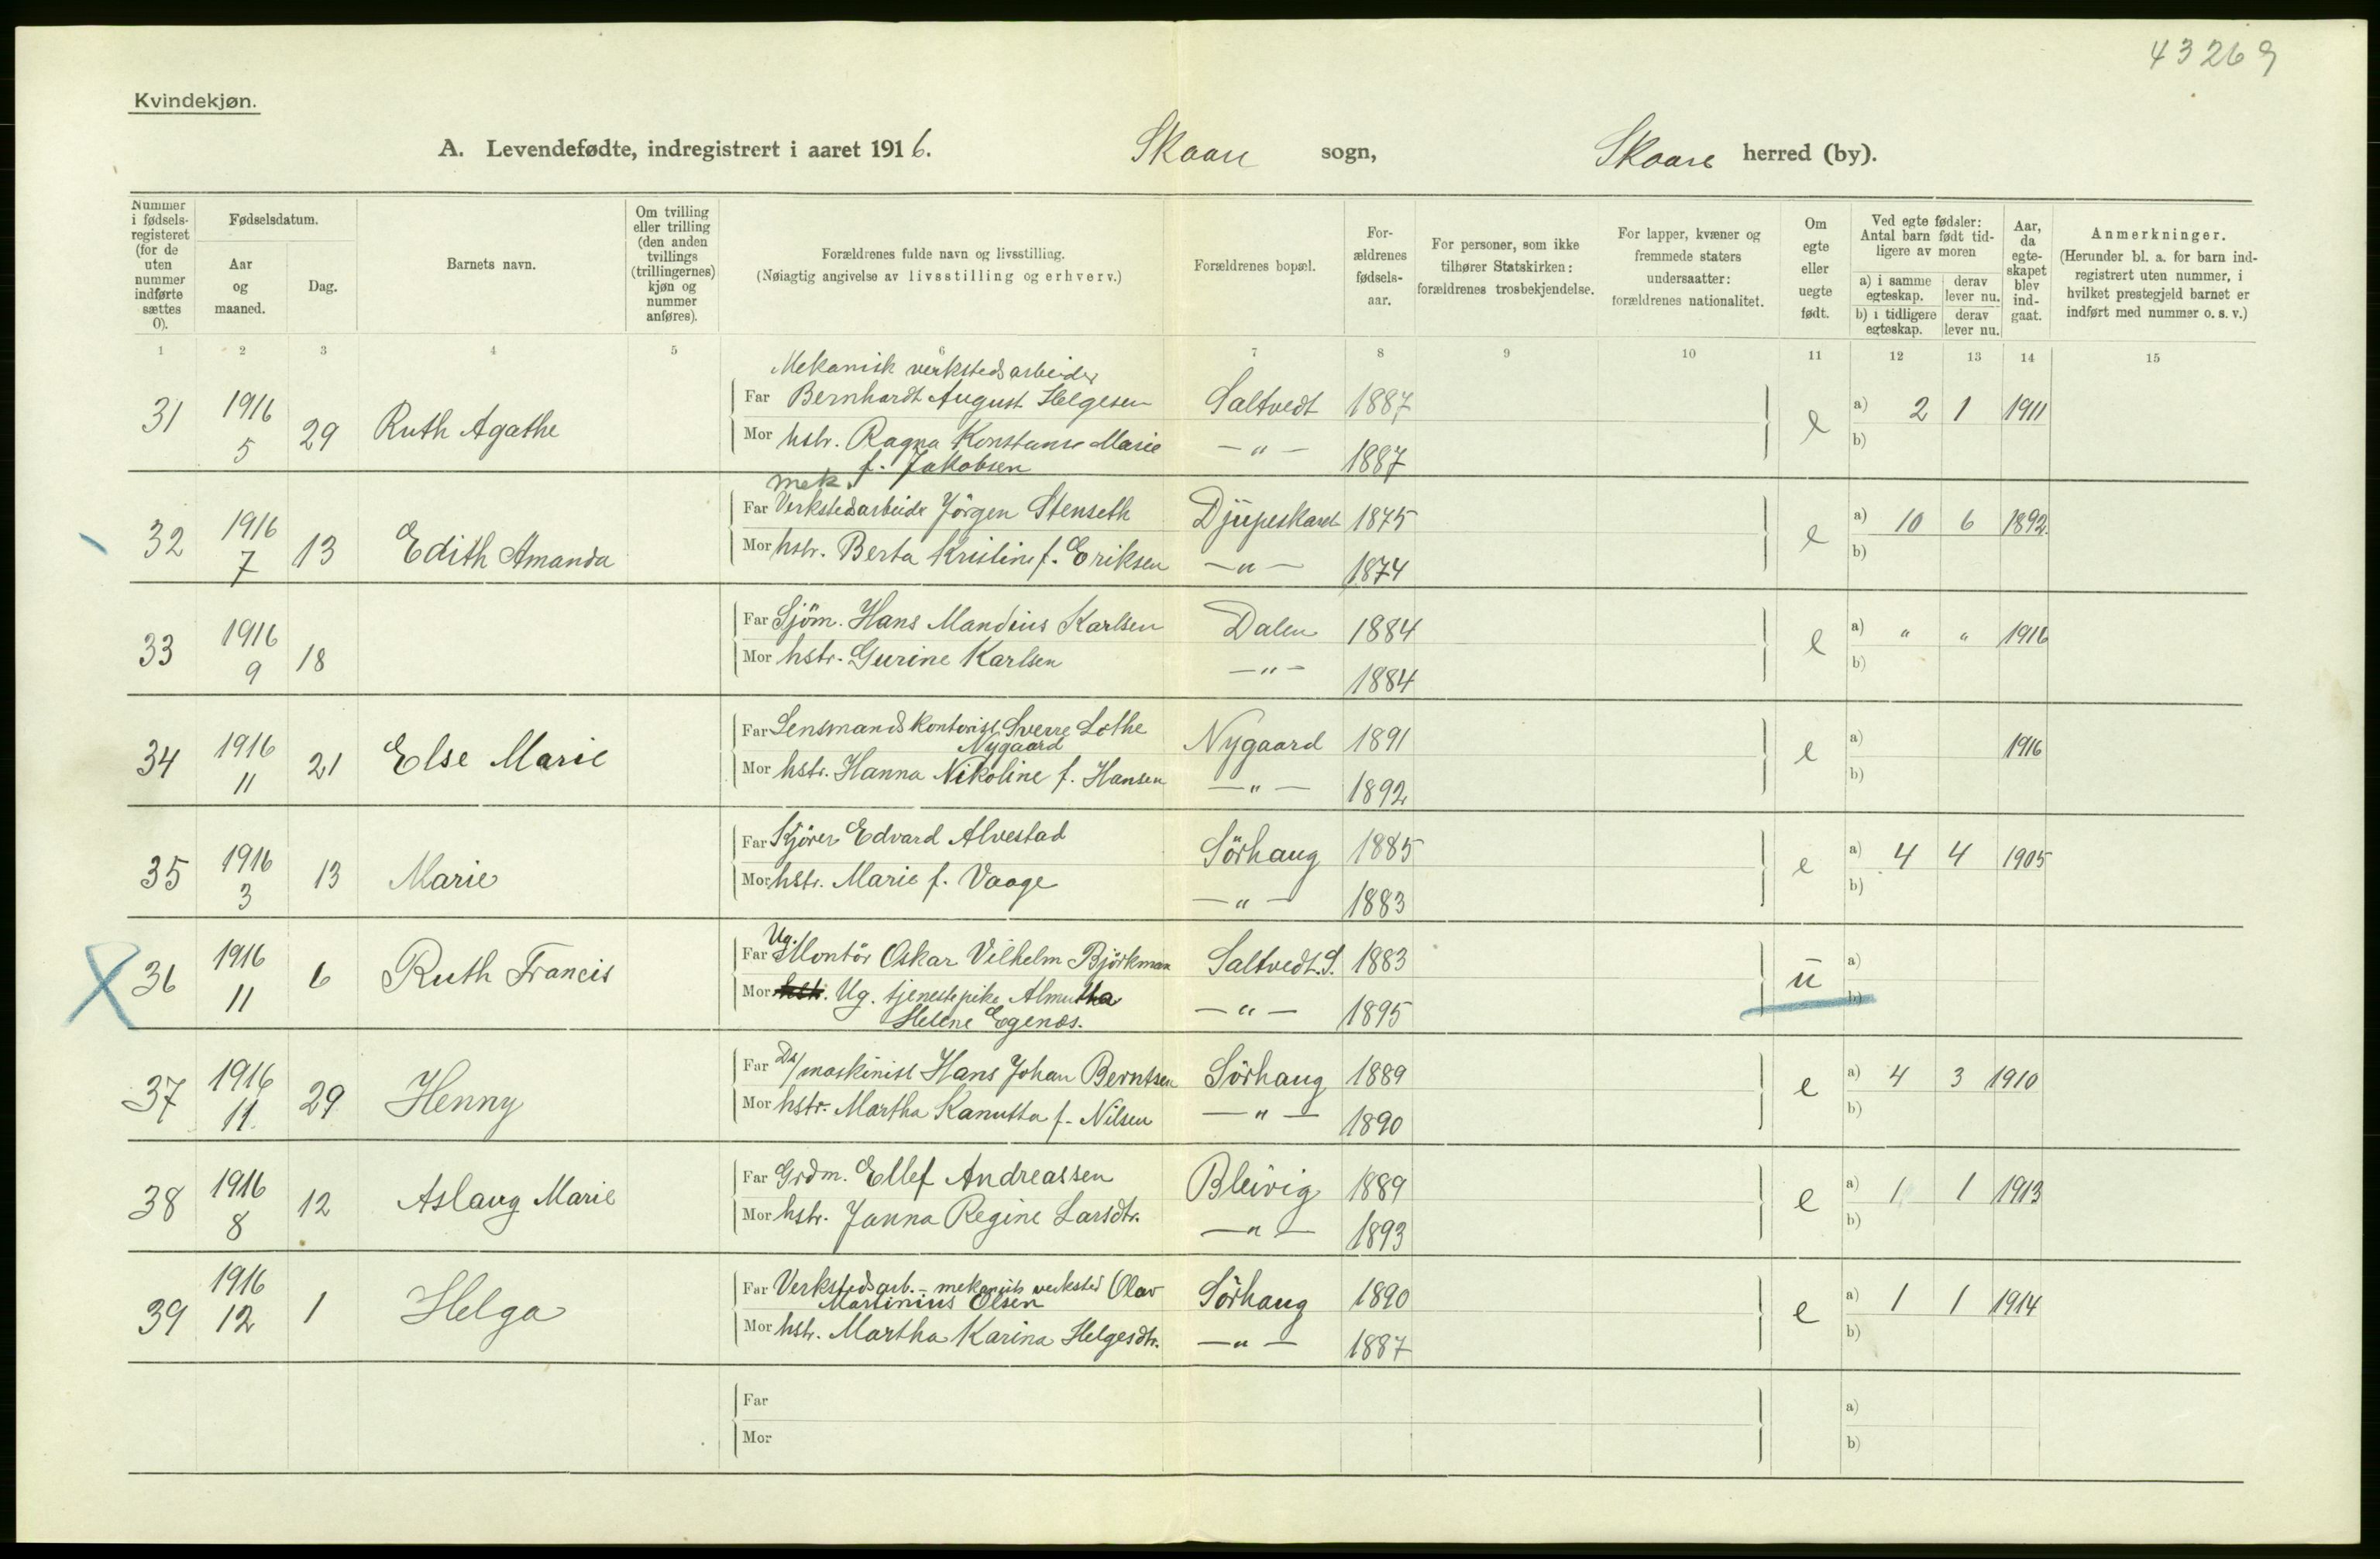 43269
Kvindekjøn.
A. Levendefødte, indregistrert i aaret 1916. Skaare sogn, Skaare herred (by).
Nummer i fødsels-registeret (for de uten nummer indførte sættes 0).
Fødselsdatum.
Aar og maaned.
Dag.
Barnets navn.
Om tvilling eller trilling (den anden tvillings (trillingernes) kjøn og nummer anføres).
Forældrenes fulde navn og livsstilling.
(Nøiagtig angivelse av livsstilling og erhverv.)
Forældrenes bopæl.
For-ældrenes fødsels-aar.
For personer, som ikke tilhører Statskirken: forældrenes trosbekjendelse.
For lapper, kvæner og fremmede staters undersaatter: forældrenes nationalitet.
Om egte eller uegte født.
Ved egte fødsler: Antal barn født tid-ligere av moren
a) i samme egteskap.
derav lever nu.
b) i tidligere egteskap.
derav lever nu.
Aar, da egte-skapet blev ind-gaat.
Anmerkninger.
(Herunder bl. a. for barn ind-registrert uten nummer, i hvilket prestegjeld barnet er indført med nummer o. s. v.)
1 2 3 4 5 6 7 8 9 10 11 12 13 14 15
Mekanisk verkstedsarbeider
31 1916 5 29 Ruth Agathe Far Bernhardt August Helgesen Saltvedt 1887 e a) 2 1 1911
Mor hstr. Ragna Konstanse Marie — " — 1887 b)
f. Jakobsen
mek.
32 1916 7 13 Edith Amanda Far Verkstedsarbeider Jörgen Stenseth Djupeskaret 1875 e a) 10 6 1892.
Mor hstr. Berta Kristine f. Eriksen — " — 1874 b)
33 1916 9 18 Far Sjöm. Hans Mandius Karlsen Dalen 1884 e a) " " 1916
Mor hstr. Gurine Karlsen — " — 1884 b)
34 1916 11 21 Else Marie Far Lensmandskontorist Sverre Lothe Nygaard 1891 e a) 1916
Nygaard
Mor hstr. Hanna Nikoline f. Hansen — " — 1892 b)
35 1916 3 13 Marie Far Kjörer Edvard Alvestad Sörhaug 1885 e a) 4 4 1905
Mor hstr. Marie f. Vaage — " — 1883 b)
36 1916 11 6 Ruth Francis Far Ug. Montör Oskar Vilhelm Björkman Saltvedt. S. 1883 u a)
Mor hstr. Ug. tjenestepike Almutha — " — 1895 b)
Helene Egenæs.
37 1916 11. 29 Henny Far Ds/maskinist Hans Johan Berntsen Sörhaug 1889 e a) 4 3 1910
Mor hstr. Martha Kanutta f. Nilsen — " — 1890 b)
38 1916 8 12 Aslaug Marie Far Grdm. Ellef Andreassen Bleivig 1889 e a) 1 1 1913
Mor hstr. Janna Regine Larsdtr. — " — 1893 b)
39 1916 12 1 Helga Far Verkstedsarb. – mekanisk verksted Olav Sörhaug 1890 e a) 1 1 1914
Martinius Olsen
Mor hstr. Martha Karina Helgesdtr. — " — 1887 b)
Far a)
Mor b)